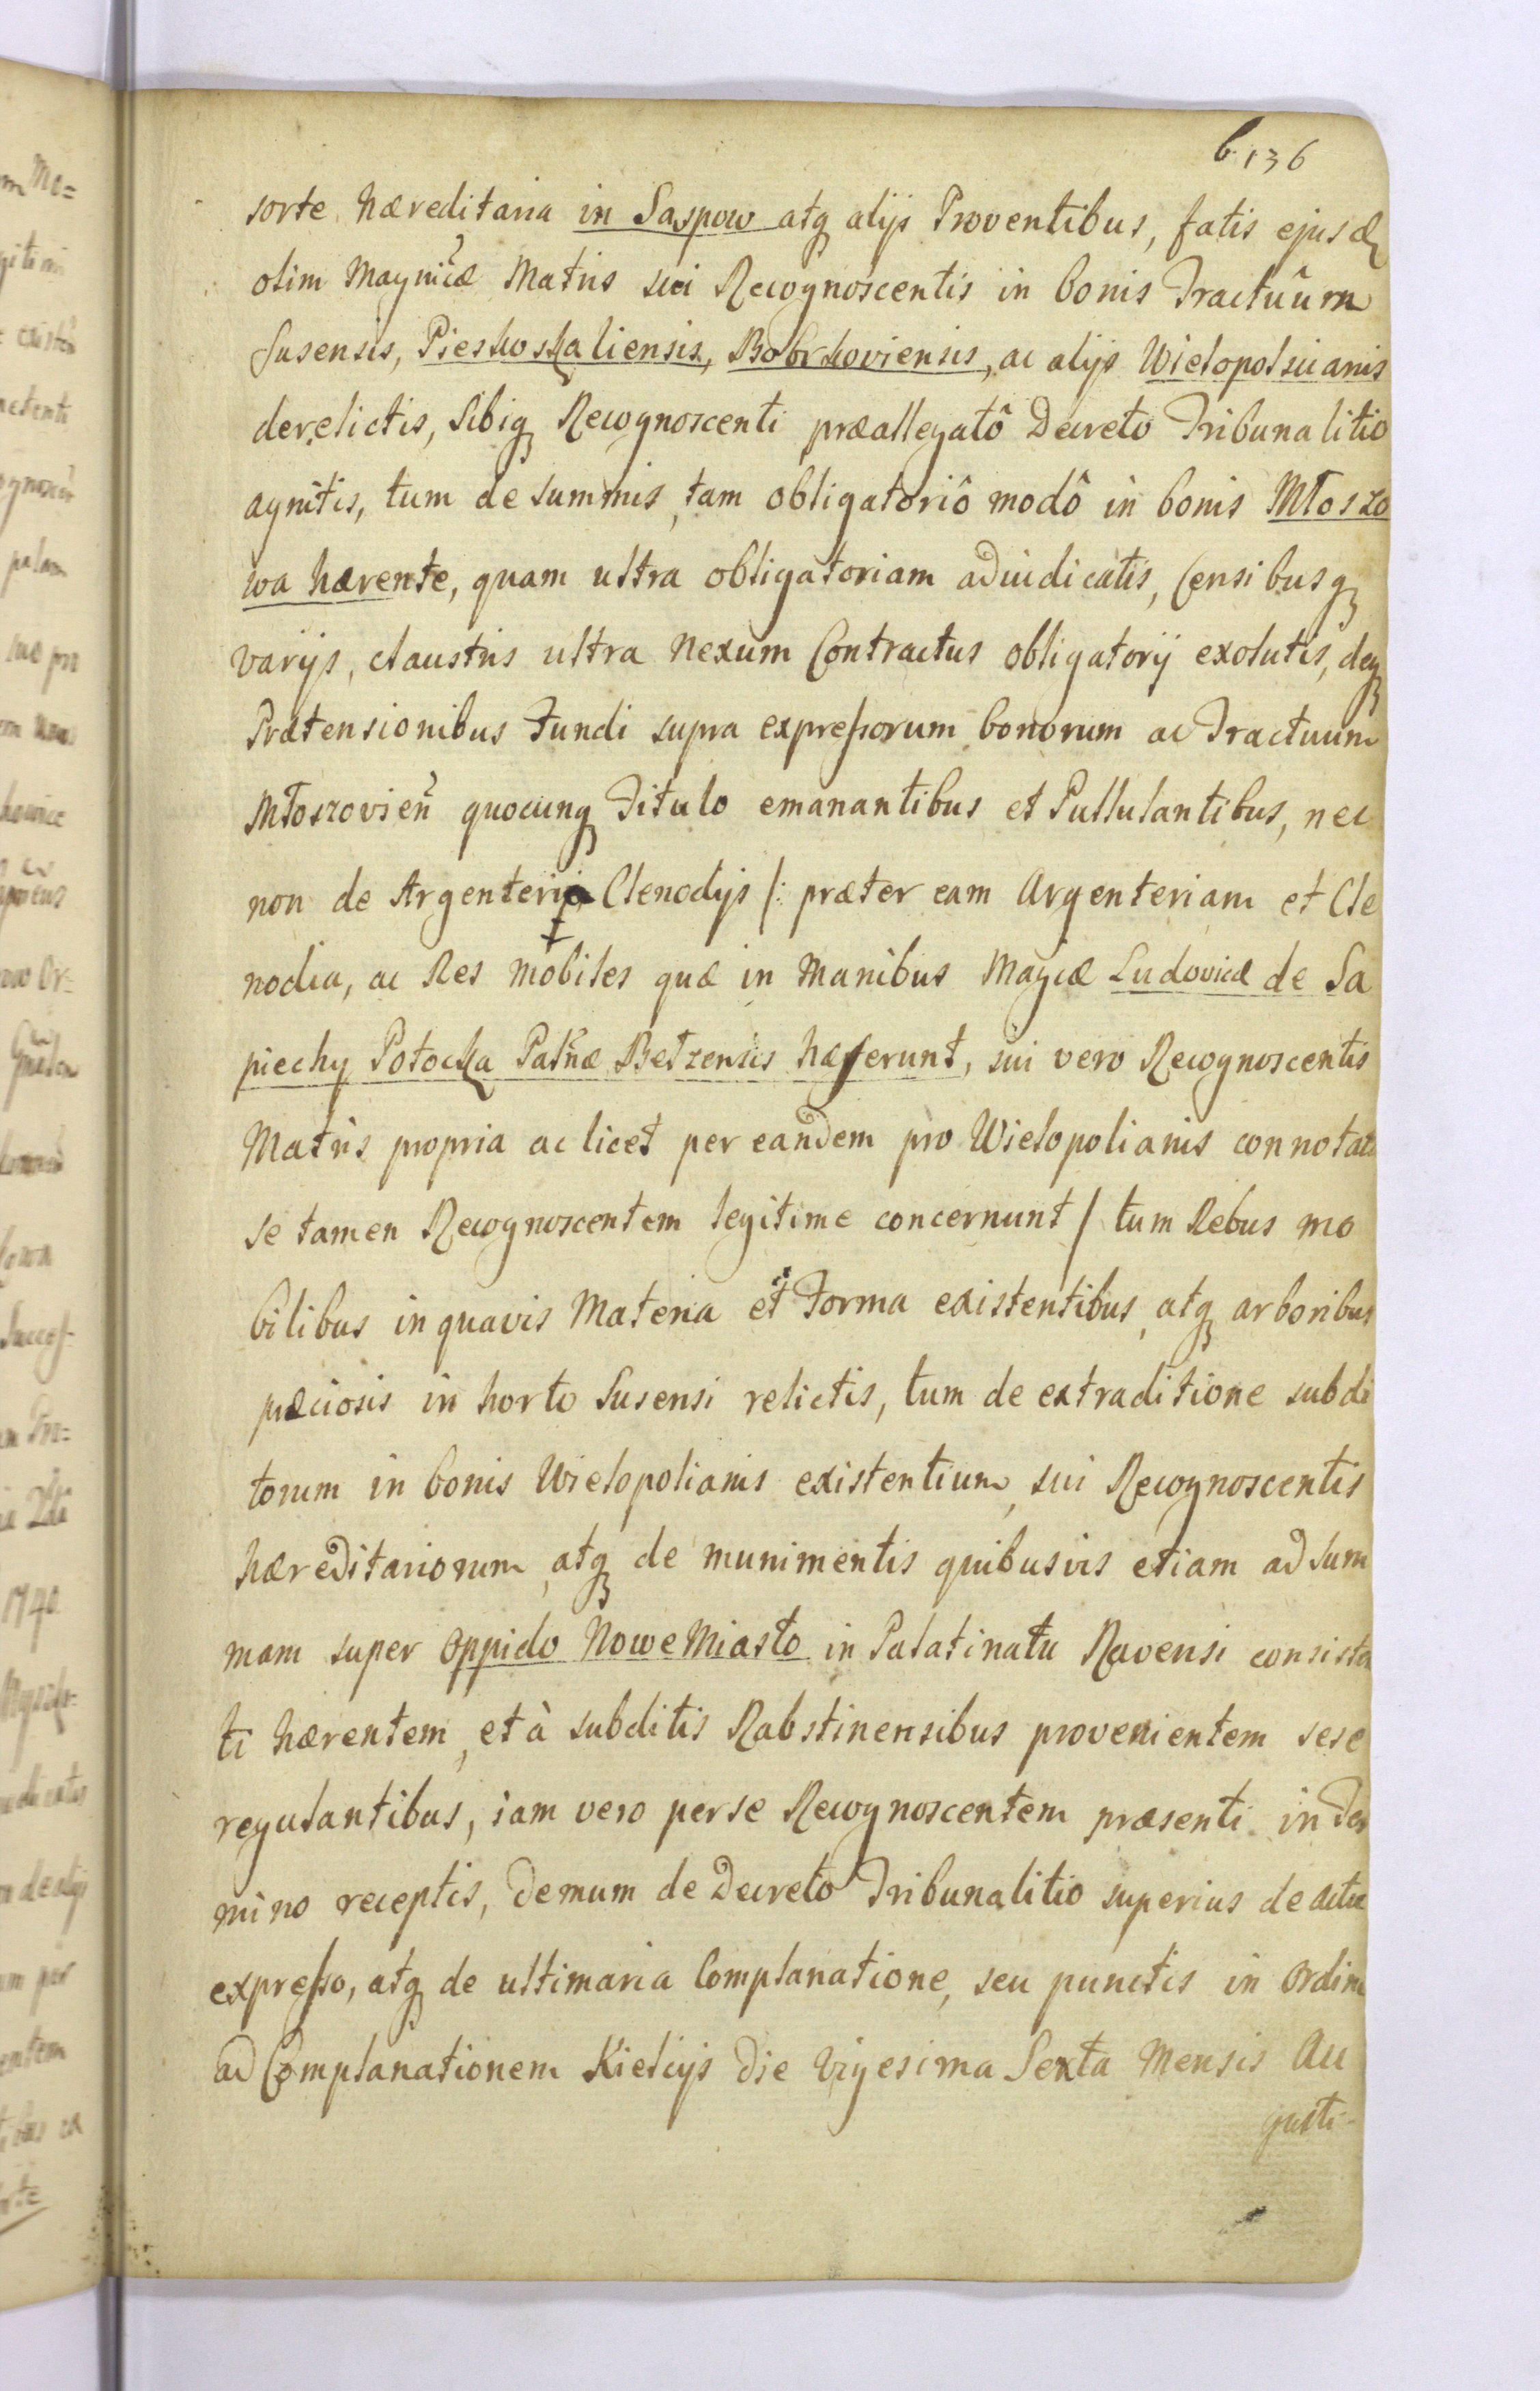 6. 136
sorte hæreditaria in Saspow atq alijs Proventibus, fatis ejusd
olim Magnicæ Matris sui Recognoscentis in bonis Tractuûm
Susensis, Pieskoskaliensis, Bobrkoviensis, ac alijs Wielopolscianis
derelictis, sibiq Recognoscenti præallegatô Decreto Tribunalitio
agnitis, tum de summis, tam obligatoriô modô in bonis Młoszo
wa hærente, quam ultra obligatoriam adiudicatis, Censibusq
varijs, claustris ultra nexum Contractus obligatorij exolutis, deq
Prætensionibus Fundi supra expressorum bonorum ac Tractuum
Młoszovien quocunq Titulo emanantibus et Pullulantibus, nec
non de Argenteria Clenodijs /: præter eam Argenteriam et Cle
nodia, ac Res mobiles quæ in Manibus Magcæ Ludovicæ de Sa
piechy Potocka Patnæ Betzensis hæserunt, sui vero Recognoscentis
Matris propria ac licet per eandem pro Wielopolianis connotata
se tamen Recognoscentem legitime concernunt / tum Rebus mo
bilibus in quavis Materia et Forma existentibus, atq arboribus
præciosis in horto Susensi relictis, tum de extraditione subdi
torum in bonis Wielopolianis existentium, sui Recognoscentis
hæreditariorum, atq de munimentis quibusvis etiam ad sum
mam super Oppido Nowe Miasto in Palatinatu Ravensi consisten
ti hærentem, et à subditis Rabstinensibus provenientem sese
regulantibus, iam vero per se Recognoscentem præsenti in Ter
mino receptis, demum de Decreto Tribunalitio superius de actu
expresso, atq de ultimaria Complanatione, seu punctis in Ordine
ad Complanationem Kielcijs die Vigesima Sexta Mensis Au
gusti-